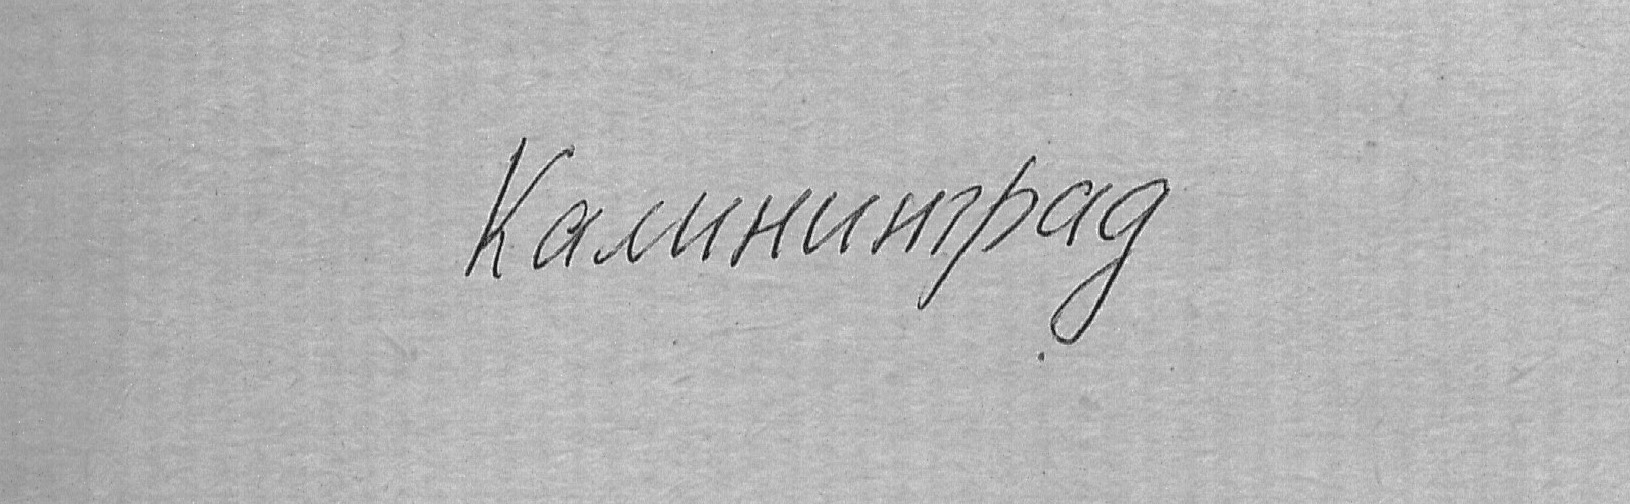 Калининград